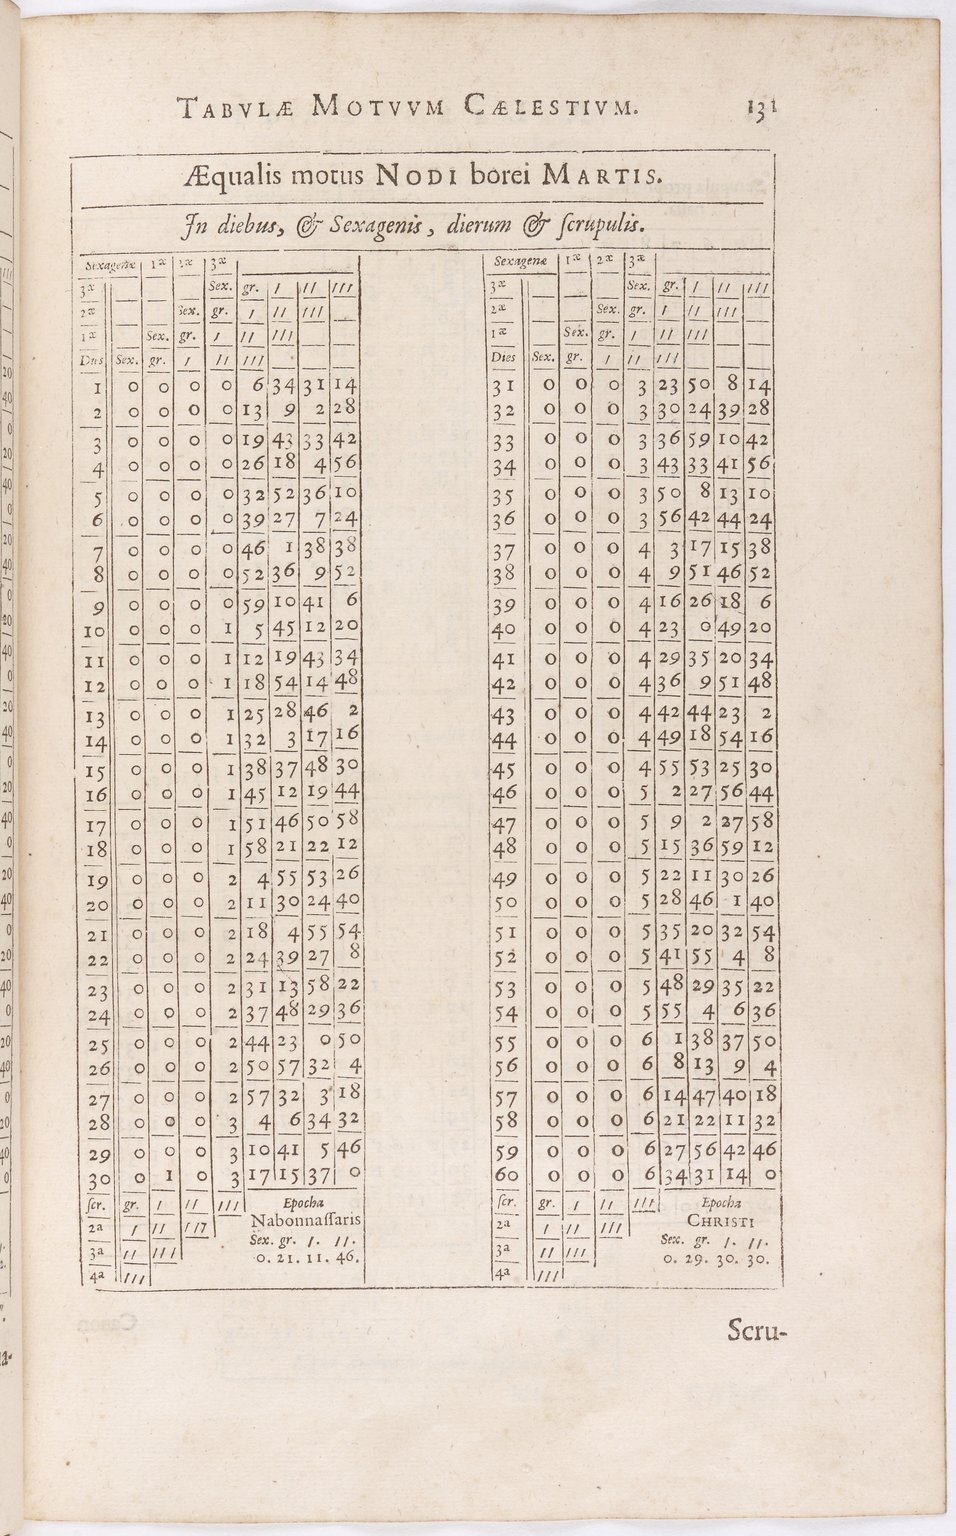 TABVLÆ MOTVVM CÆLESTIVM. 131
Æqualis motus NODI borei MARTIS.
In diebus, & Sexagenis, dierum & ſcrupulis.
Sexagenæ 1æ 2æ 3æ
3æ Sex. gr. / // ///
2æ Sex. gr. / // ///
1æ Sex. gr. / // ///
Dies Sex. gr. / // ///
1 0 0 0 0 6 34 31 14
2 0 0 0 0 13 9 2 28
3 0 0 0 0 19 43 33 42
4 0 0 0 0 26 18 4 56
5 0 0 0 0 32 52 36 10
6 0 0 0 0 39 27 7 24
7 0 0 0 0 46 1 38 38
8 0 0 0 0 52 36 9 52
9 0 0 0 0 59 10 41 6
10 0 0 0 1 5 45 12 20
11 0 0 0 1 12 19 43 34
12 0 0 0 1 18 54 14 48
13 0 0 0 1 25 28 46 2
14 0 0 0 1 32 3 17 16
15 0 0 0 1 38 37 48 30
16 0 0 0 1 45 12 19 44
17 0 0 0 1 51 46 50 58
18 0 0 0 1 58 21 22 12
19 0 0 0 2 4 55 53 26
20 0 0 0 2 11 30 24 40
21 0 0 0 2 18 4 55 54
22 0 0 0 2 24 39 27 8
23 0 0 0 2 31 13 58 22
24 0 0 0 2 37 48 29 36
25 0 0 0 2 44 23 0 50
26 0 0 0 2 50 57 32 4
27 0 0 0 2 57 32 3 18
28 0 0 0 3 4 6 34 32
29 0 0 0 3 10 41 5 46
30 0 1 0 3 17 15 37 0
ſcr. gr. / // /// Epocha
2a / // /// Nabonnaſſaris
3a // /// Sex. gr. /. //.
4a /// 0. 21. 11. 46.
Sexagenæ 1æ 2æ 3æ
3æ Sex. gr. / // ///
2æ Sex. gr. / // ///
1æ Sex. gr. / // ///
Dies Sex. gr. / // ///
31 0 0 0 3 23 50 8 14
32 0 0 0 3 30 24 39 28
33 0 0 0 3 36 59 10 42
34 0 0 0 3 43 33 41 56
35 0 0 0 3 50 8 13 10
36 0 0 0 3 56 42 44 24
37 0 0 0 4 3 17 15 38
38 0 0 0 4 9 51 46 52
39 0 0 0 4 16 26 18 6
40 0 0 0 4 23 0 49 20
41 0 0 0 4 29 35 20 34
42 0 0 0 4 36 9 51 48
43 0 0 0 4 42 44 23 2
44 0 0 0 4 49 18 54 16
45 0 0 0 4 55 53 25 30
46 0 0 0 5 2 27 56 44
47 0 0 0 5 9 2 27 58
48 0 0 0 5 15 36 59 12
49 0 0 0 5 22 11 30 26
50 0 0 0 5 28 46 1 40
51 0 0 0 5 35 20 32 54
52 0 0 0 5 41 55 4 8
53 0 0 0 5 48 29 35 22
54 0 0 0 5 55 4 6 36
55 0 0 0 6 1 38 37 50
56 0 0 0 6 8 13 9 4
57 0 0 0 6 14 47 40 18
58 0 0 0 6 21 22 11 32
59 0 0 0 6 27 56 42 46
60 0 0 0 6 34 31 14 0
ſcr. gr. / // /// Epocha
2a / // /// CHRISTI
3a // /// Sex. gr. /. //.
4a /// 0. 29. 30. 30.
Scru-